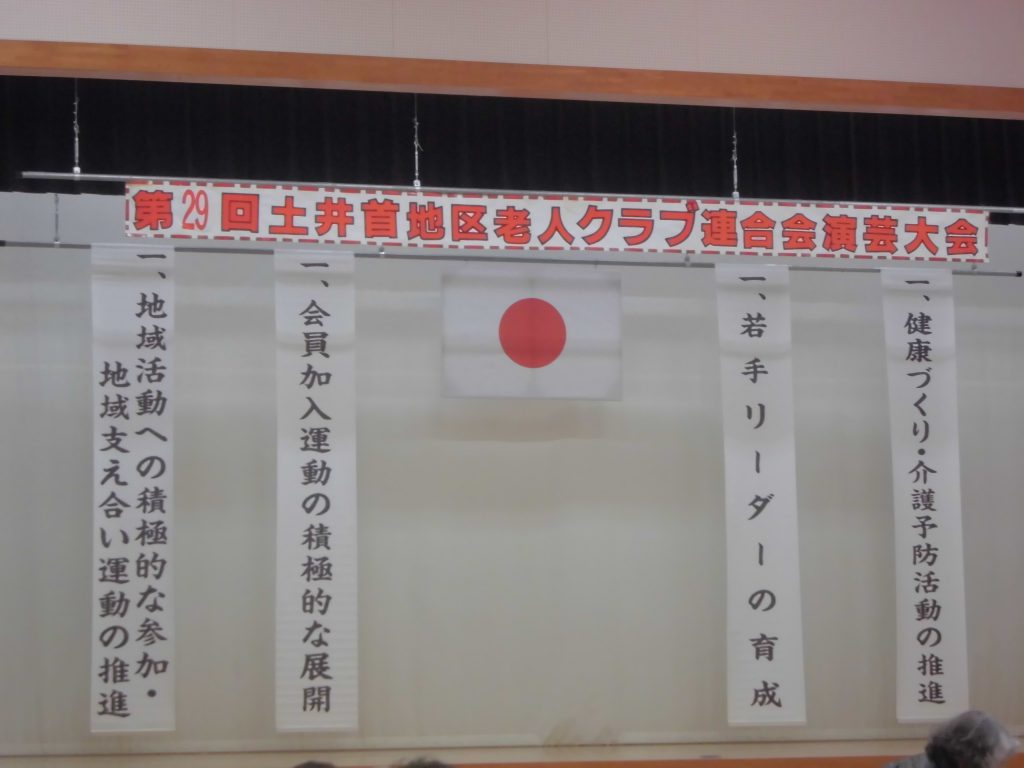 第29回土井首地区老人クラブ連合会演芸大会
一、健康づくり・介護予防活動の推進
一、若手リーダーの育成
一、会員加入運動の積極的な展開
一、地域活動への積極的な参加・
地域支え合い運動の推進